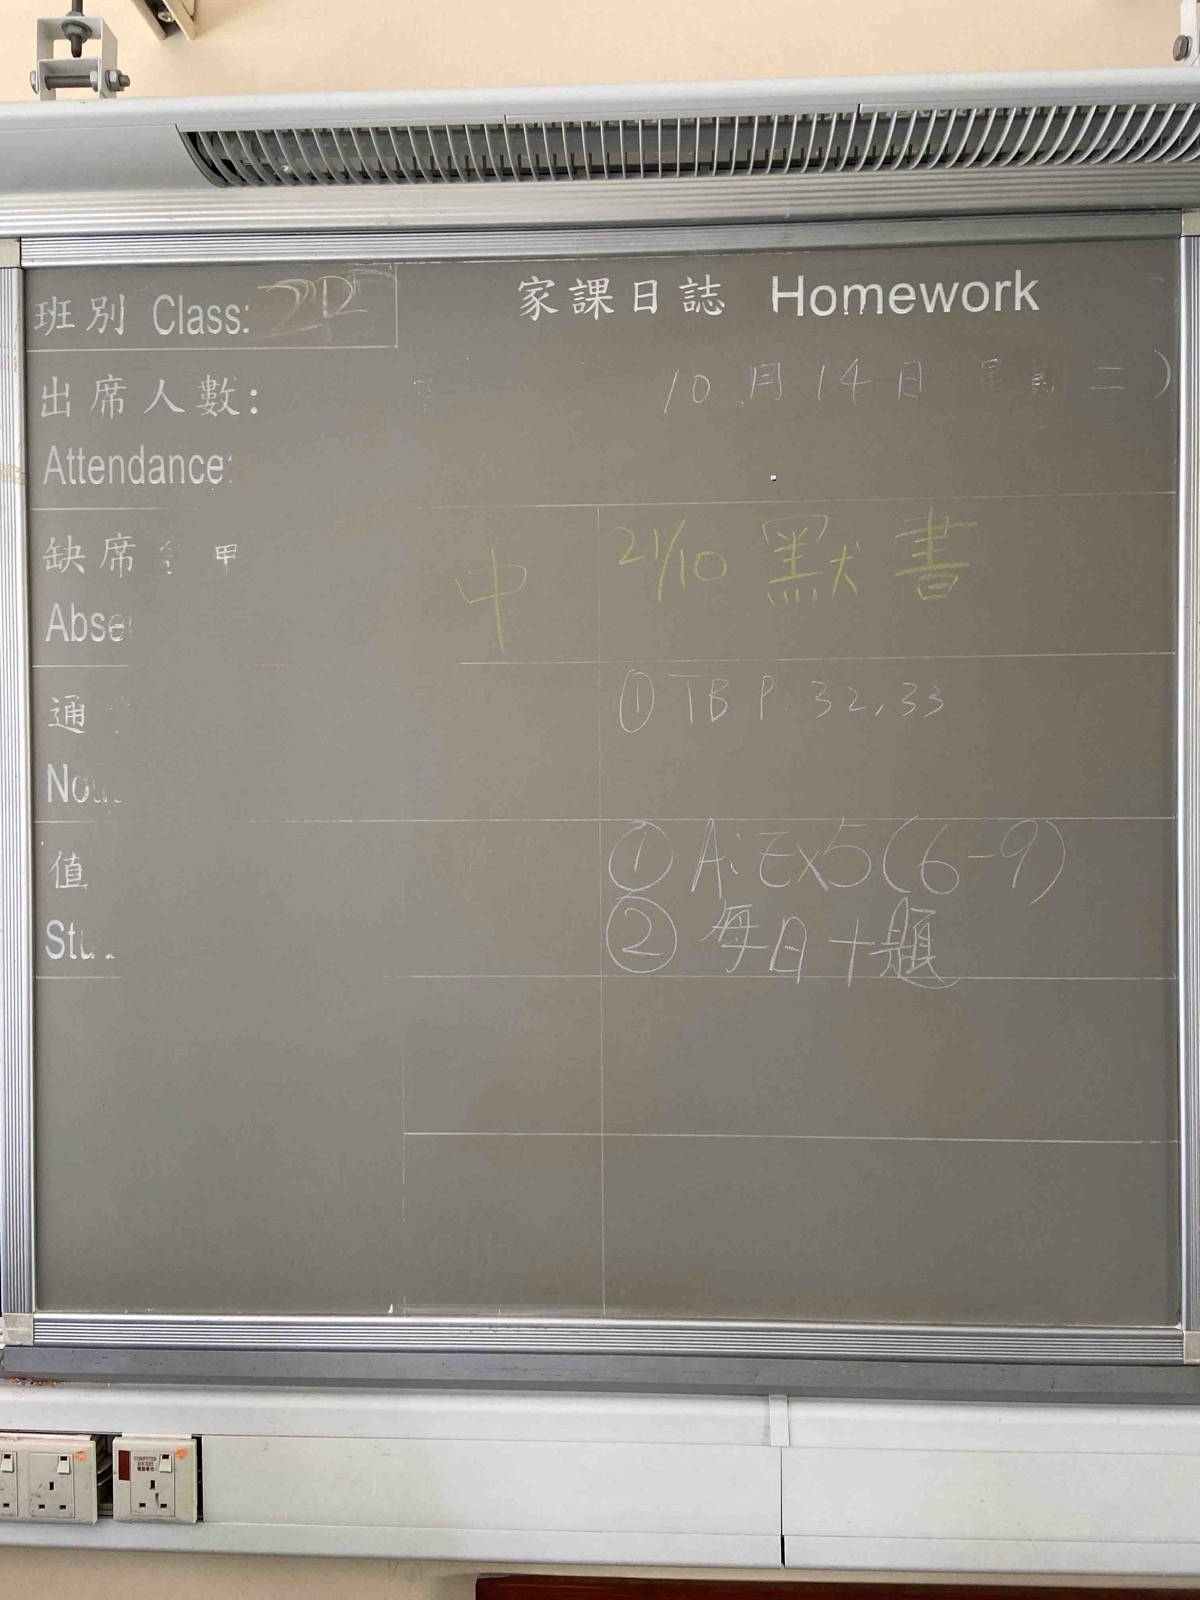 班別 Class: 2P
家課日誌 Homework
出席人數:
10月14日 星期二)
Attendance:
缺席
中 21/10 默書
Abse
通
① TB P. 32,33
No
值
① A: Ex5(6-9)
② 每日十題
Stu
COMPUTER
SOCKET
電腦專用